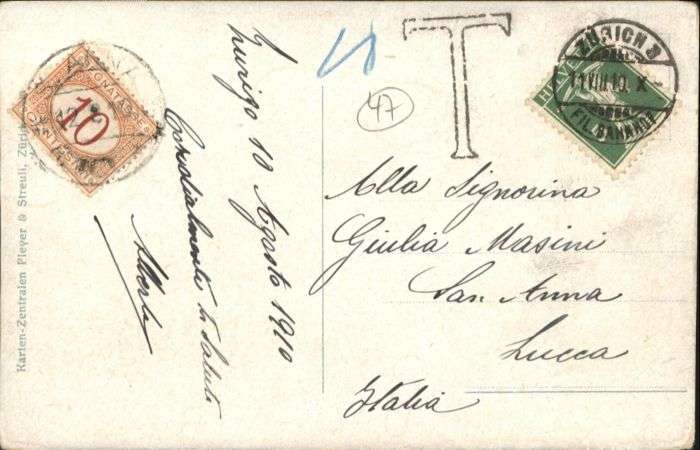 Zurigo 10 Agosto 1910
Cordialmente ti saluto
Alberto
T
47
10
ZÜRICH 8
11.VIII.10. X
FIL. BAHNHOF
HELVETIA
Alla Signorina
Giulia Masini
San Anna
Lucca
Italia
Karten-Zentralen Pleyer & Streuli, Zürich